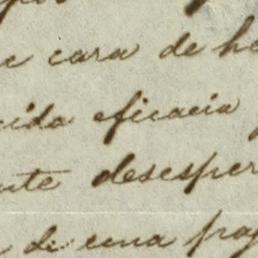 cara de he
cida eficacia
nte desesper
di una pag